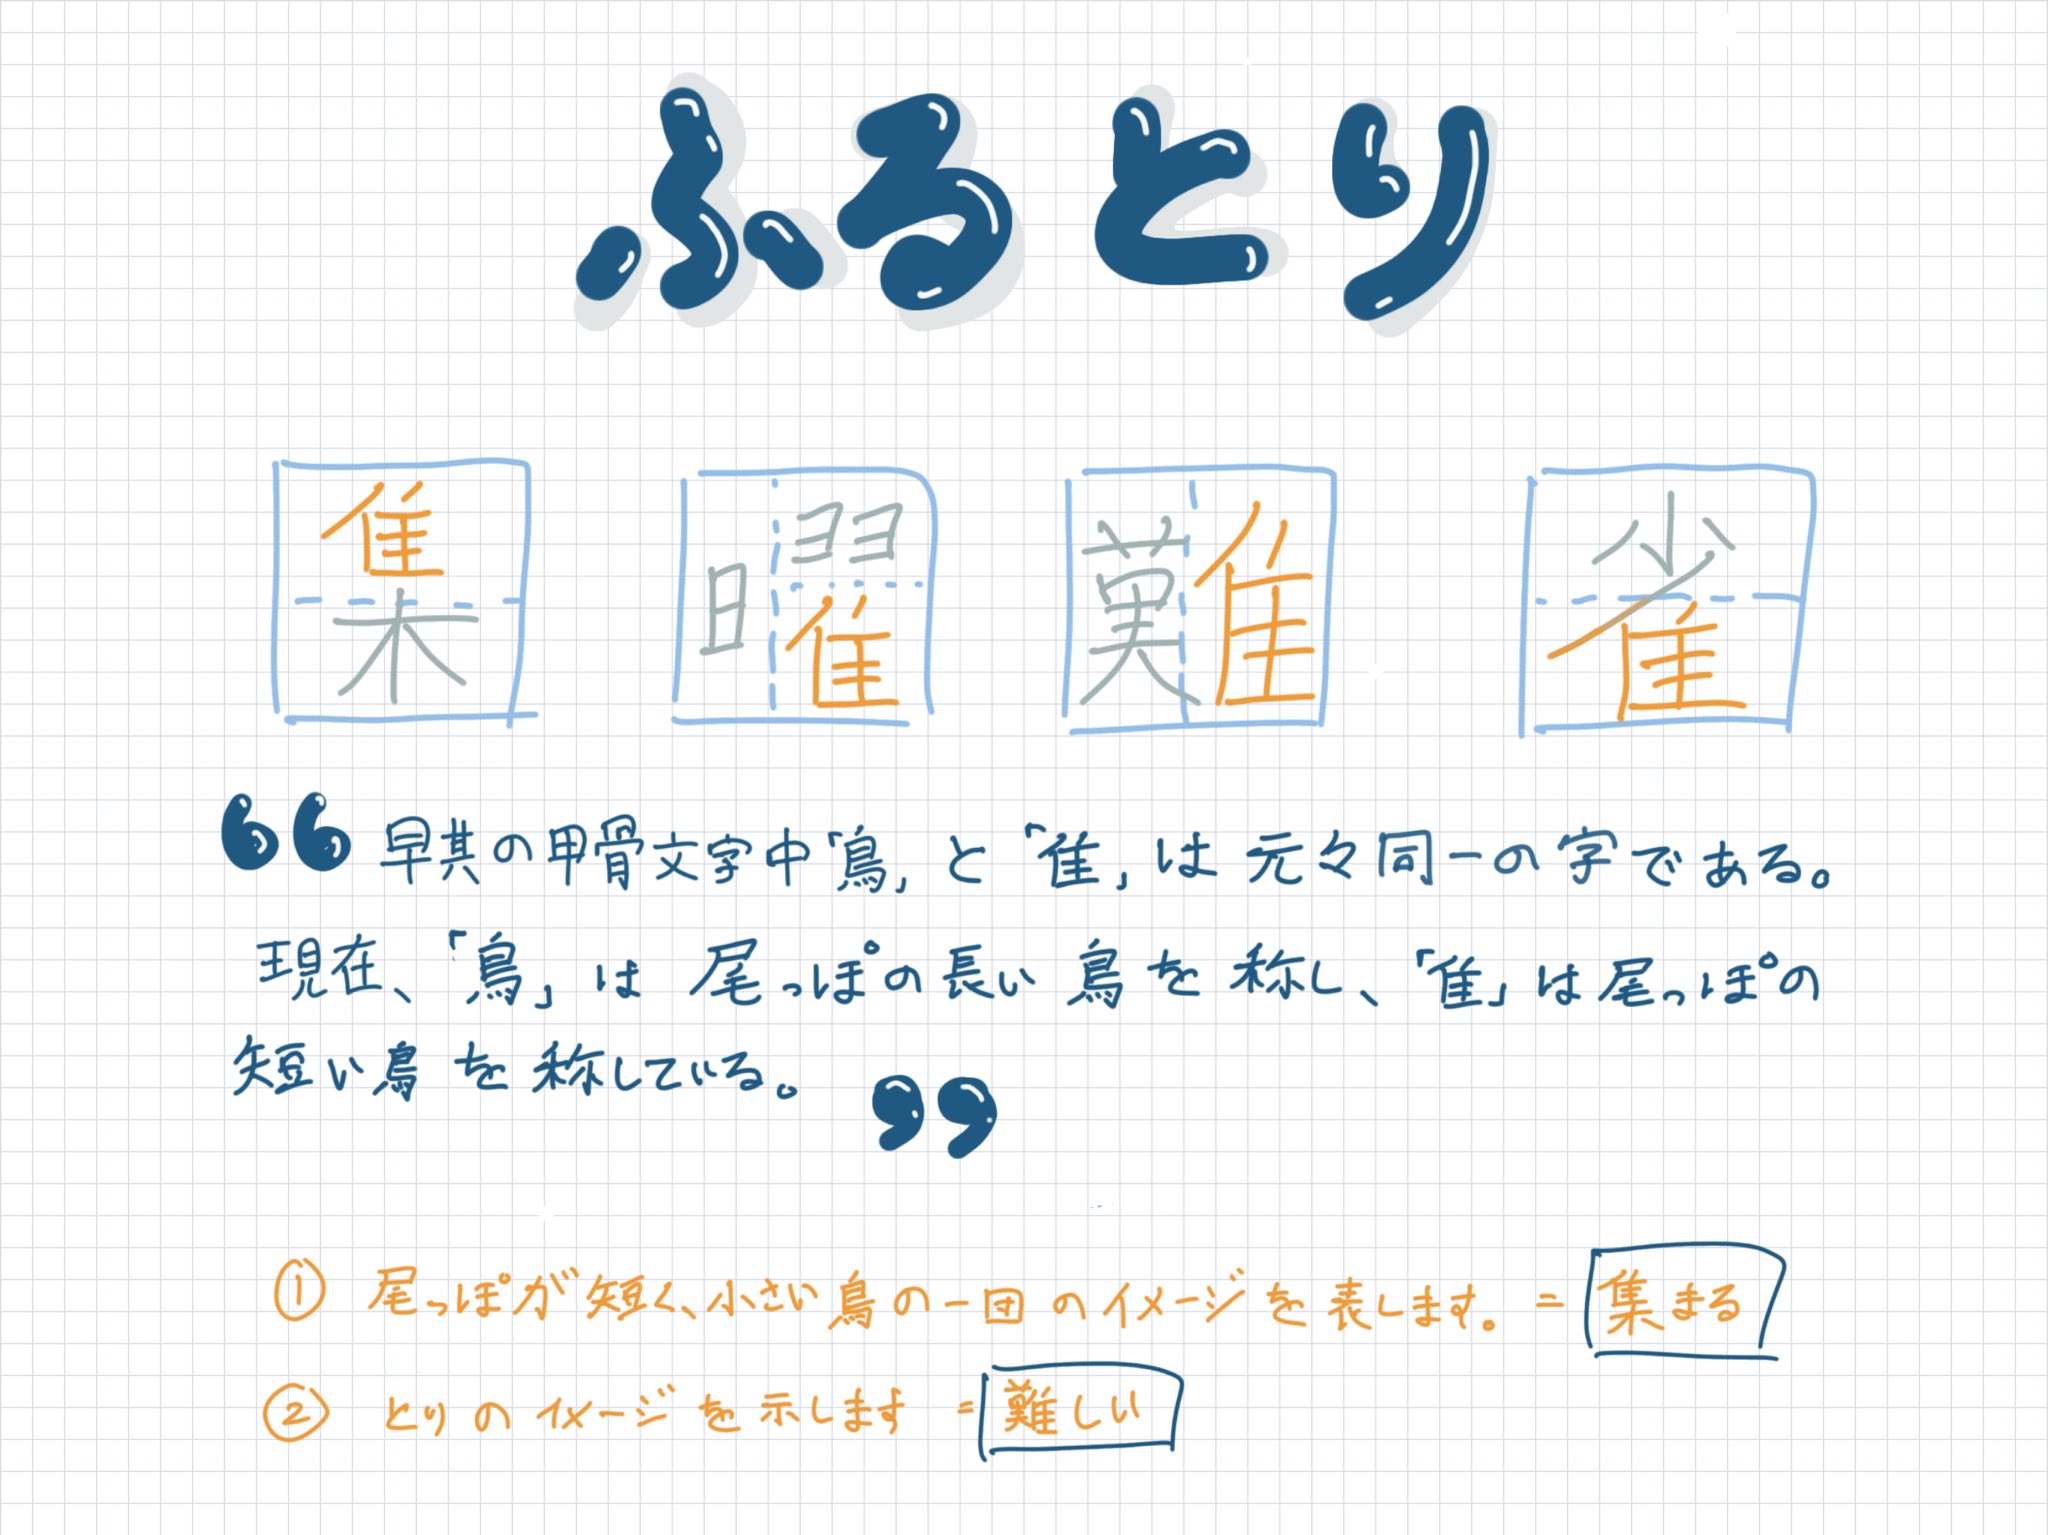 ふるとり
集 曜 難 雀
早其の甲骨文字中「鳥」と「隹」は元々同一の字である。
現在、「鳥」は尾っぽの長い鳥を称し、「隹」は尾っぽの
短い鳥を称している。
① 尾っぽが短く、小さい鳥の一団のイメージを表します。 = 集まる
② とりのイメージを示します = 難しい